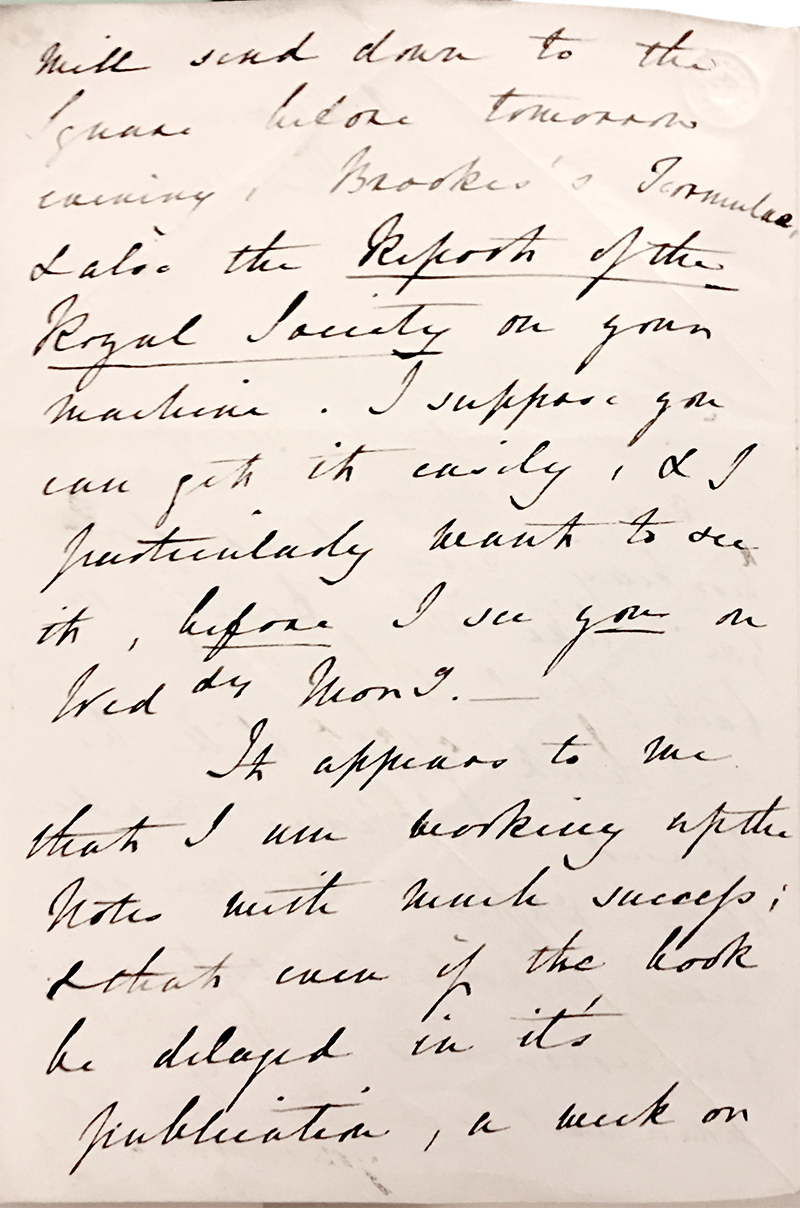 will send down to the
Square before tomorrow
evening, Brookes's Formulae,
& also the Report of the
Royal Society on your
machine. I suppose you
can get it easily, & I
particularly want to see
it, before I see you on
Wed dy Morng. —
It appears to me
that I am working up the
Notes with much success;
& that even if the book
be delayed in it's
publication, a week or